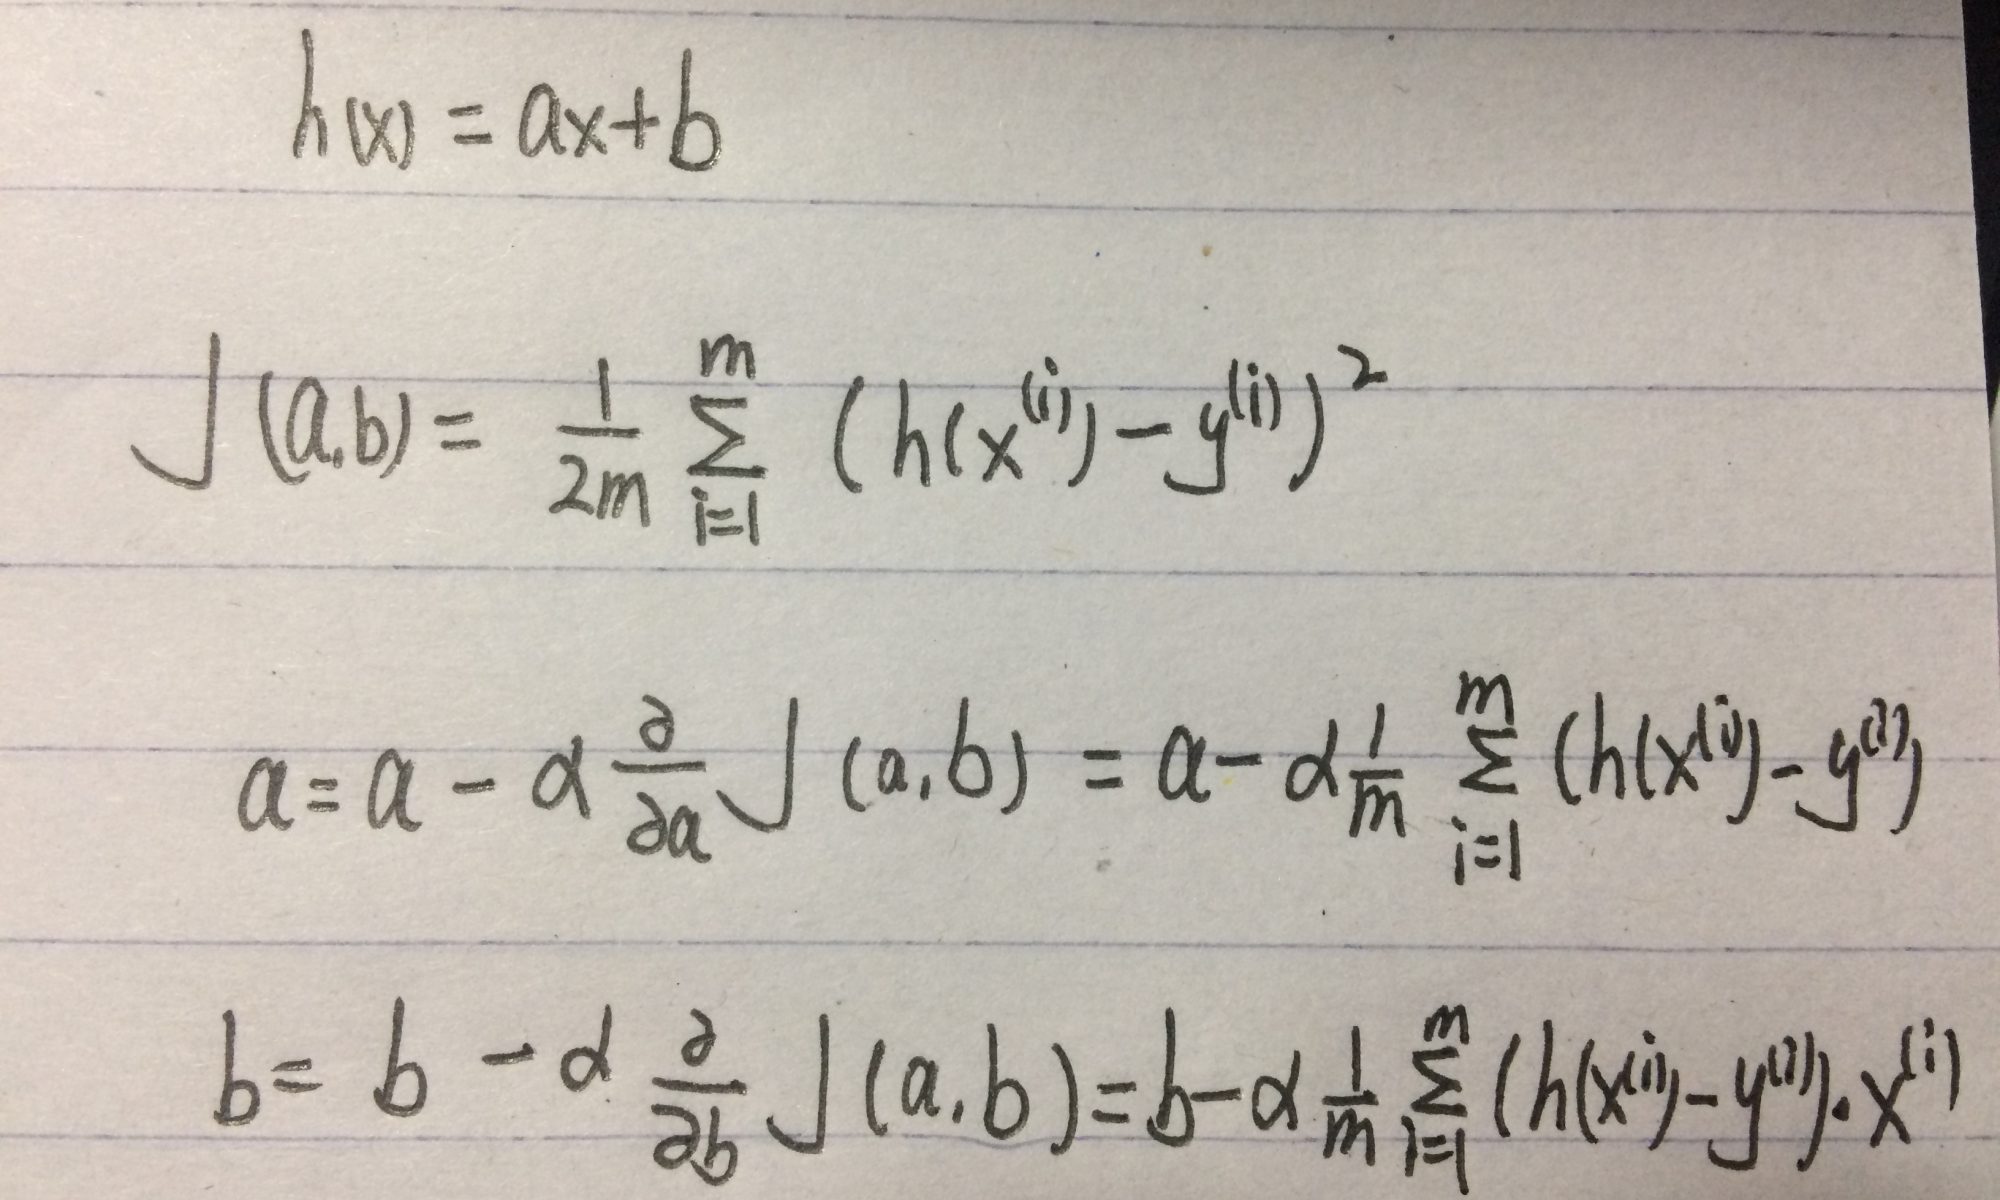 h(x) = ax+b
J(a,b) = \frac{1}{2m} \sum_{i=1}^{m} (h(x^{(i)}) - y^{(i)})^2
a = a - α \frac{∂}{∂a} J(a,b) = a - α \frac{1}{m} \sum_{i=1}^{m} (h(x^{(i)}) - y^{(i)})
b = b - α \frac{∂}{∂b} J(a,b) = b - α \frac{1}{m} \sum_{i=1}^{m} (h(x^{(i)}) - y^{(i)}) · x^{(i)}